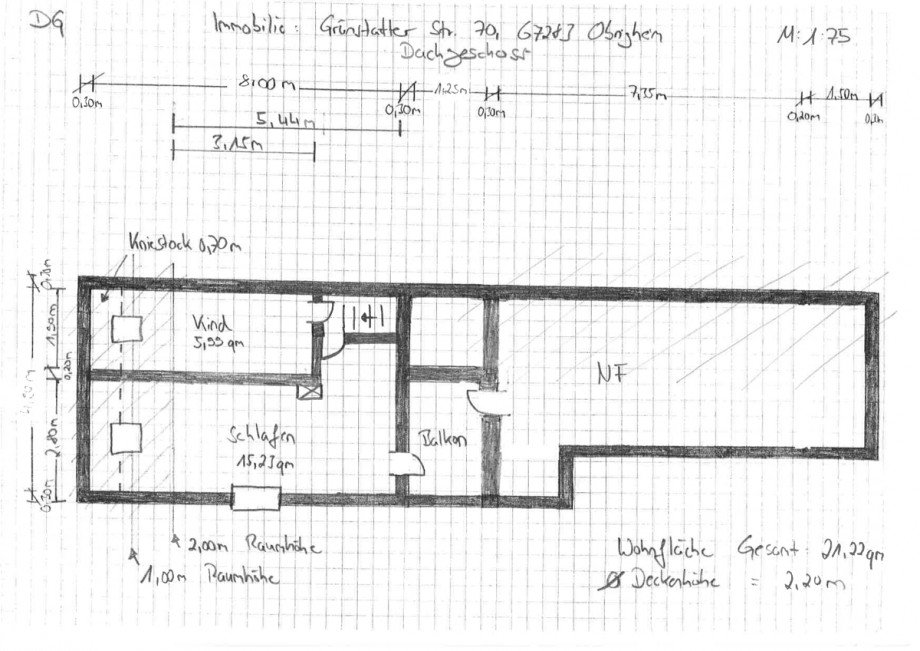 DG
Immobilie: Grünstatter Str. 70, 67283 Obrigheim
M: 1:75
Dachgeschoss
8,00m
1,25m
7,35m
1,50m
0,30m
0,30m
0,30m
0,20m
5,44m
3,15m
Kniestock 0,70m
Kind
5,99 qm
1,90m
0,20m
NF
2,80m
Schlafen
15,23qm
Balkon
0,30m
2,00m Raumhöhe
1,00m Raumhöhe
Wohnfläche Gesamt: 21,22qm
Ø Deckenhöhe = 2,20m